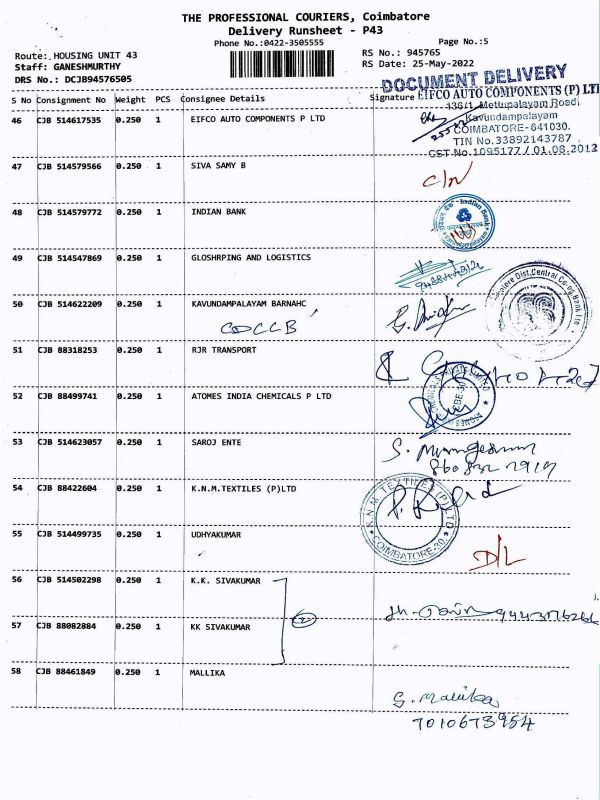 THE PROFESSIONAL COURIERS, Coimbatore
Delivery Runsheet - P43
Phone No.:0422-3505555
Page No.:5
Route: HOUSING UNIT 43
RS No.: 945765
Staff: GANESHMURTHY
RS Date: 25-May-2022
DRS No.: DCJB94576505
DOCUMENT DELIVERY
S No Consignment No Weight PCS Consignee Details Signature
EIFCO AUTO COMPONENTS (P) LTD
136/1, Mettupalayam Road
Kavundampalayam
COIMBATORE-641030.
TIN No.33892143787
CST No.1095177 / 01.08.2012
46 CJB 514617535 0.250 1 EIFCO AUTO COMPONENTS P LTD
47 CJB 514579566 0.250 1 SIVA SAMY B
48 CJB 514579772 0.250 1 INDIAN BANK
Indian Bank
49 CJB 514547869 0.250 1 GLOSHRPING AND LOGISTICS
50 CJB 514622209 0.250 1 KAVUNDAMPALAYAM BARNAHC
CDCCB
Dist.Central Co-op.Bank Ltd
51 CJB 88318253 0.250 1 RJR TRANSPORT
52 CJB 88499741 0.250 1 ATOMES INDIA CHEMICALS P LTD
53 CJB 514623057 0.250 1 SAROJ ENTE
S. Murugesan
54 CJB 88422604 0.250 1 K.N.M.TEXTILES (P)LTD
K.N.M. TEXTILES (P) LTD
COIMBATORE-30.
55 CJB 514499735 0.250 1 UDHYAKUMAR
D/L
56 CJB 514502298 0.250 1 K.K. SIVAKUMAR
57 CJB 88082884 0.250 1 KK SIVAKUMAR
58 CJB 88461849 0.250 1 MALLIKA
G. Mallika
7010673954